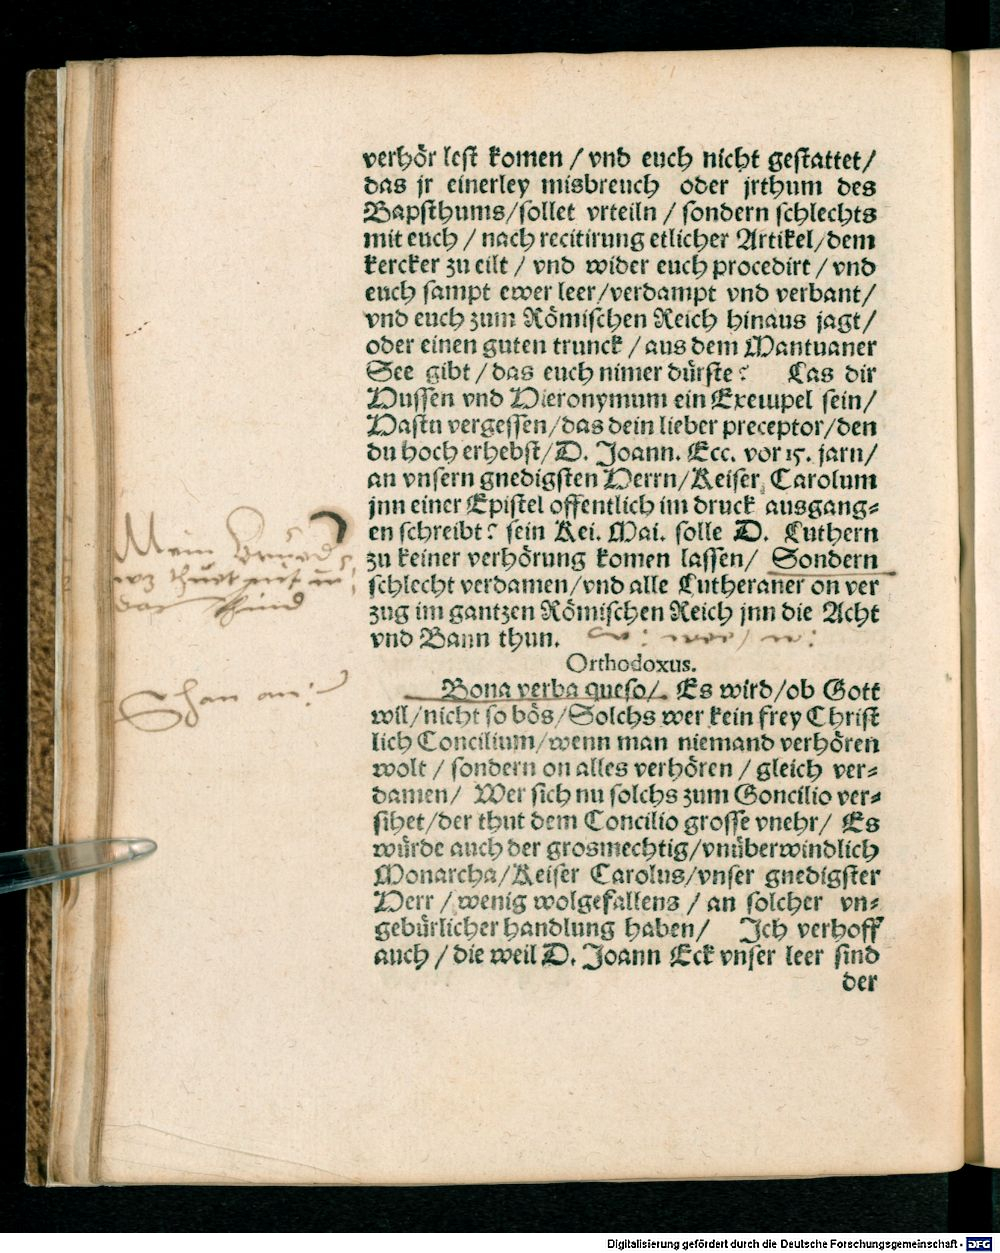 verhör lest komen / vnd euch nicht gestattet/
das jr einerley misbreuch oder jrthum des
Bapsthums/sollet vrteiln / sondern schlechts
mit euch / nach recitirung etlicher Artikel/dem
kercker zu eilt / vnd wider euch procedirt / vnd
euch sampt ewer leer/verdampt vnd verbant/
vnd euch zum Römischen Reich hinaus jagt/
oder einen guten trunck / aus dem Mantuaner
See gibt / das euch nimer dürste? Las dir
Hussen vnd Hieronymum ein Exempel sein/
Hastu vergessen/das dein lieber preceptor/den
du hoch erhebst/D. Joann. Ecc. vor 15. jarn/
an vnsern gnedigsten Herrn/Keiser Carolum
jnn einer Epistel offentlich im druck ausgang=
en schreibt? sein Kei. Mai. solle D. Luthern
zu keiner verhörung komen lassen/ Sondern
schlecht verdamen/vnd alle Lutheraner on ver
zug im gantzen Römischen Reich jnn die Acht
vnd Bann thun.
Mein
das kind
Orthodoxus.
Bona verba queso/ Es wird/ob Gott
wil/nicht so bös/Solchs wer kein frey Christ
lich Concilium/wenn man niemand verhören
wolt / sondern on alles verhören / gleich ver=
damen/ Wer sich nu solchs zum Goncilio ver=
sihet/der thut dem Concilio grosse vnehr/ Es
würde auch der grosmechtig/vnüberwindlich
Monarcha/Keiser Carolus/vnser gnedigster
Herr / wenig wolgefallens / an solcher vn=
gebürlicher handlung haben/ Ich verhoff
auch / die weil D. Joann Eck vnser leer sind
der
Schau an:
Digitalisierung gefördert durch die Deutsche Forschungsgemeinschaft - DFG